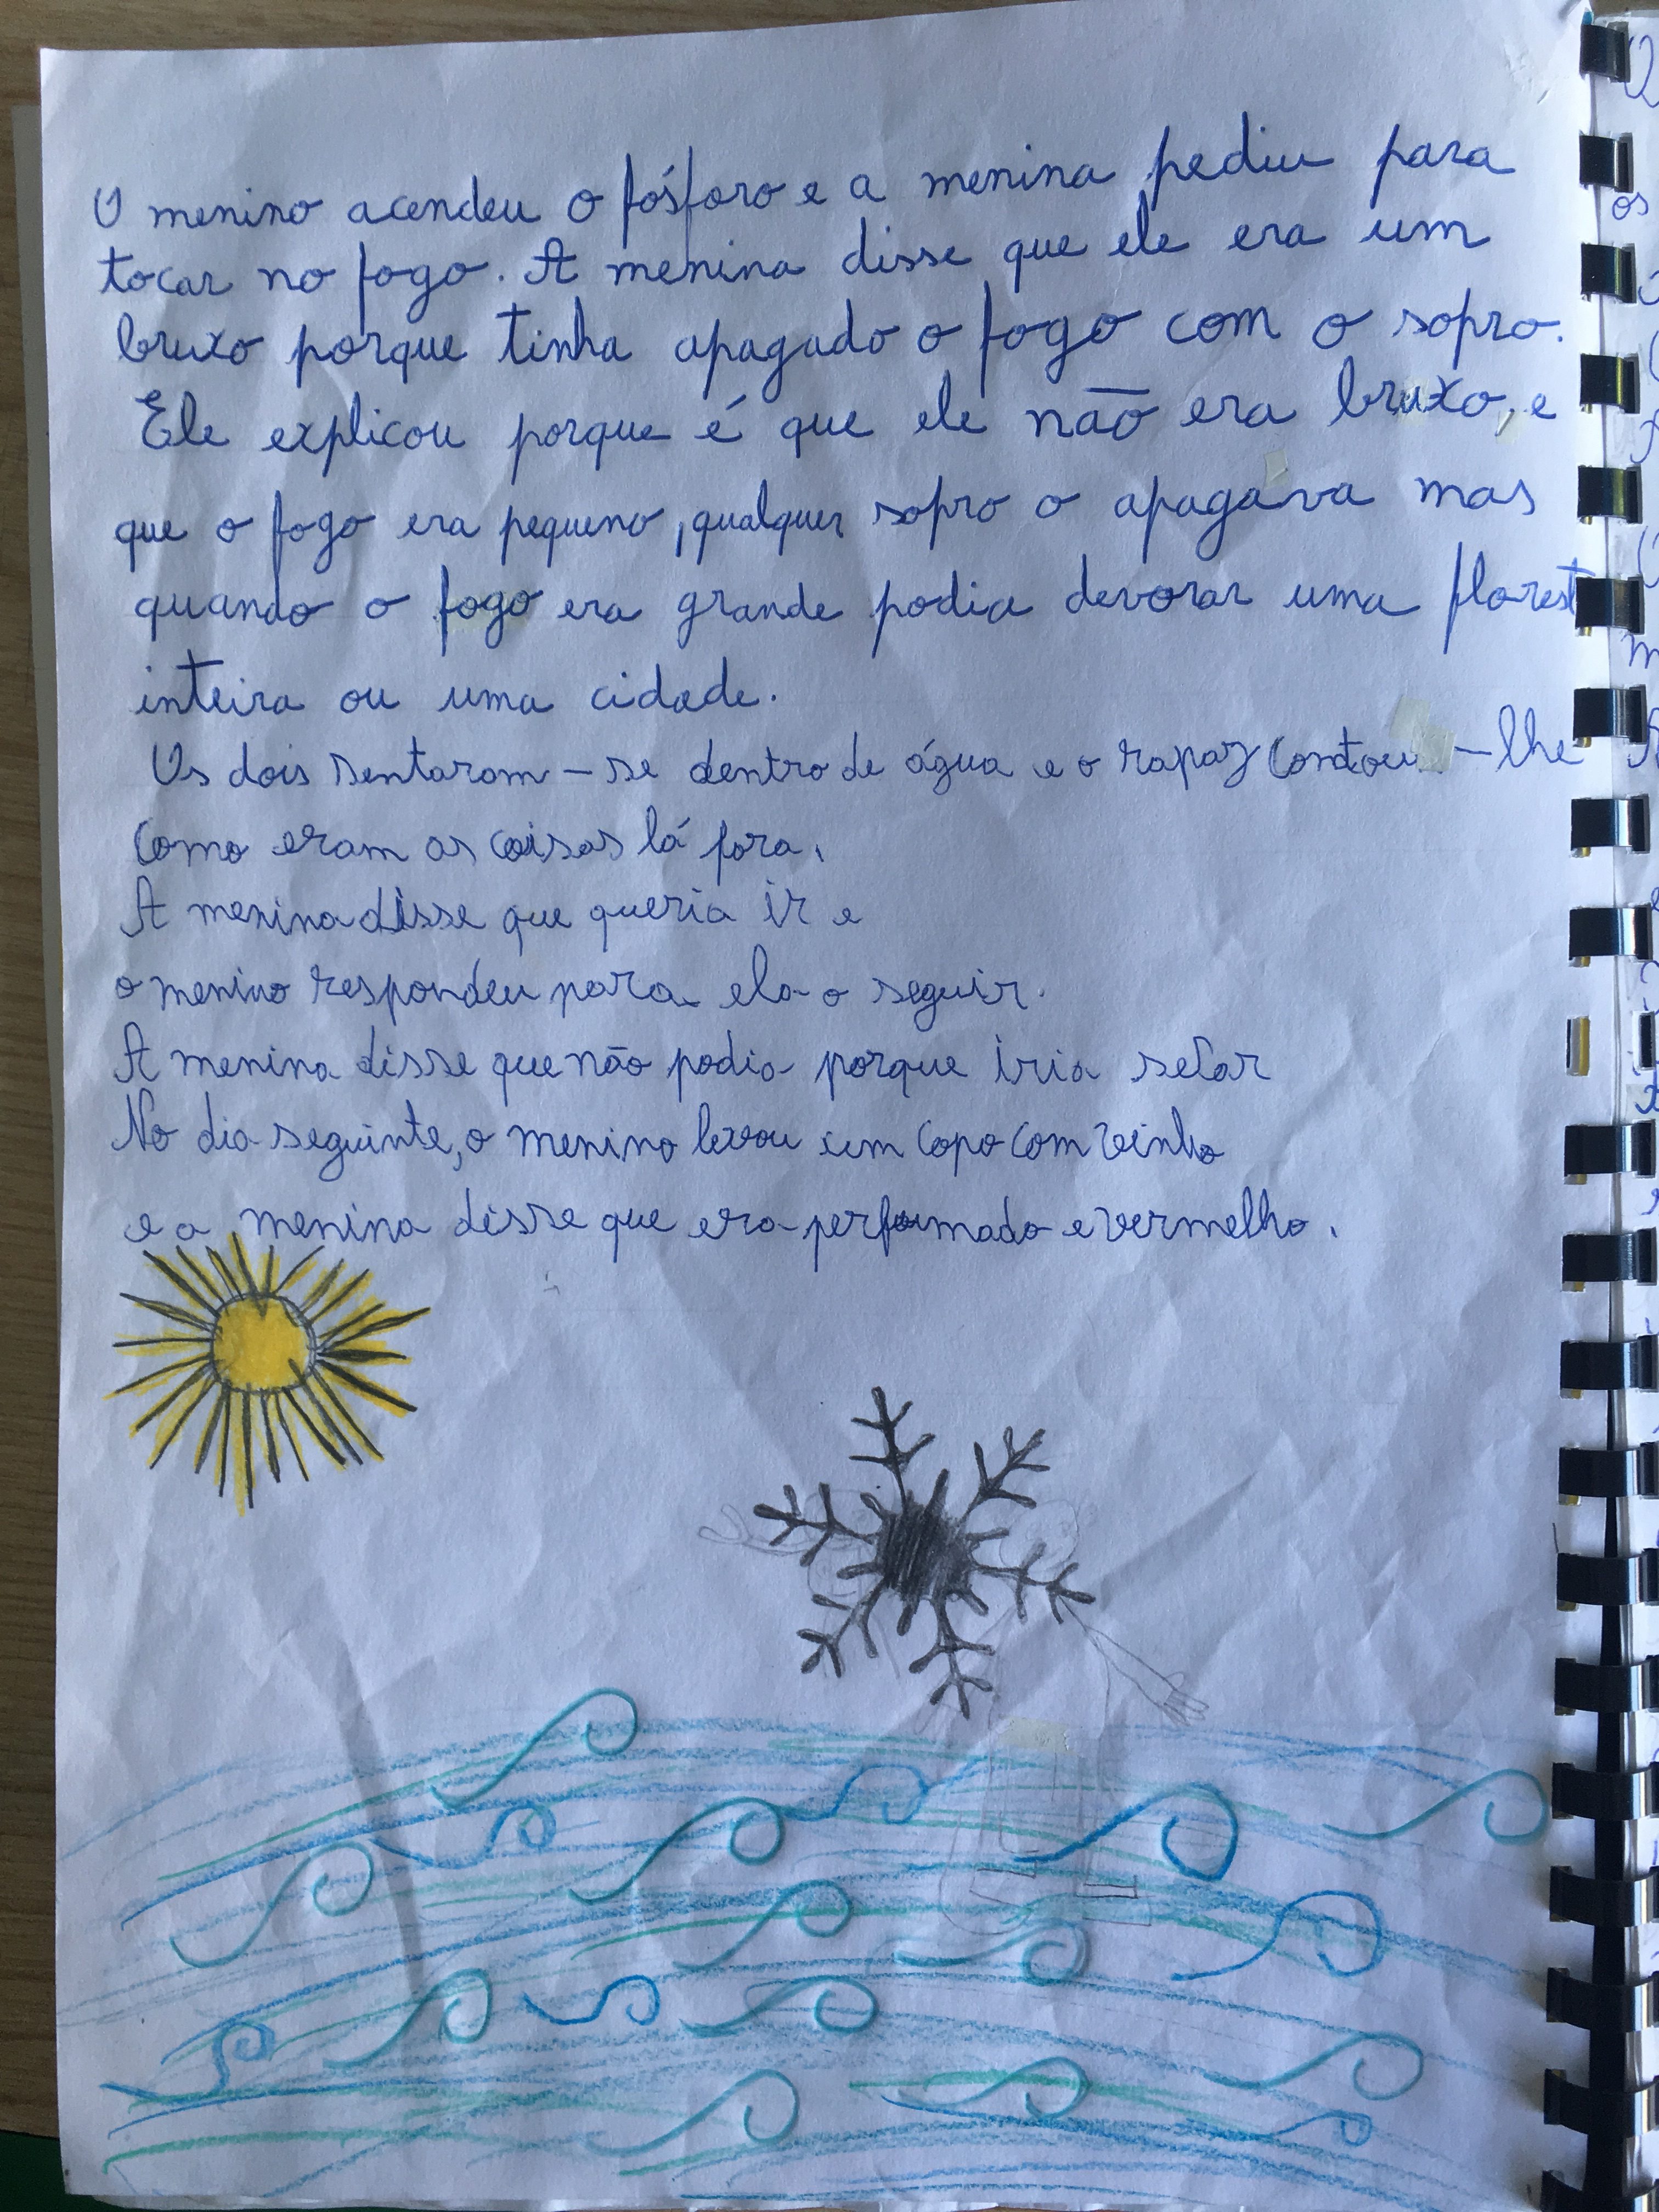 O menino acendeu o fósforo e a menina pediu para
tocar no fogo. A menina disse que ele era um
bruxo porque tinha apagado o fogo com o sopro.
Ele explicou porque é que ele não era bruxo, e
que o fogo era pequeno, qualquer sopro o apagava mas
quando o fogo era grande podia devorar uma florest
inteira ou uma cidade.
Os dois sentaram-se dentro de água e o rapaz contou-lhe
como eram as coisas lá fora.
A menina disse que queria ir e
o menino respondeu para ela o seguir.
A menina disse que não podia porque iria secar
No dia seguinte, o menino levou um copo com vinho
e a menina disse que era perfumado e vermelho.